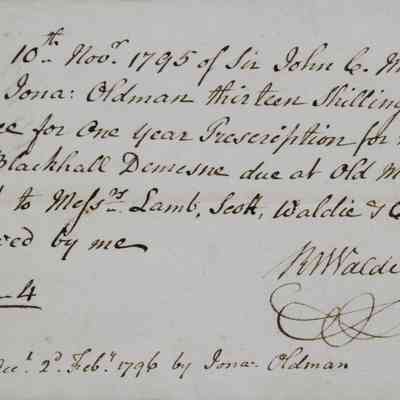 10th Novr. 1795 of Sir John C. M
Jona: Oldman thirteen Shilling
ce for One Year Prescription for
Blackhall Demesne due at Old M
to Messrs. Lamb, Scott, Waldie & C
ved by me
RWaldie
- 4
2d. Feby. 1796 by Jona: Oldman